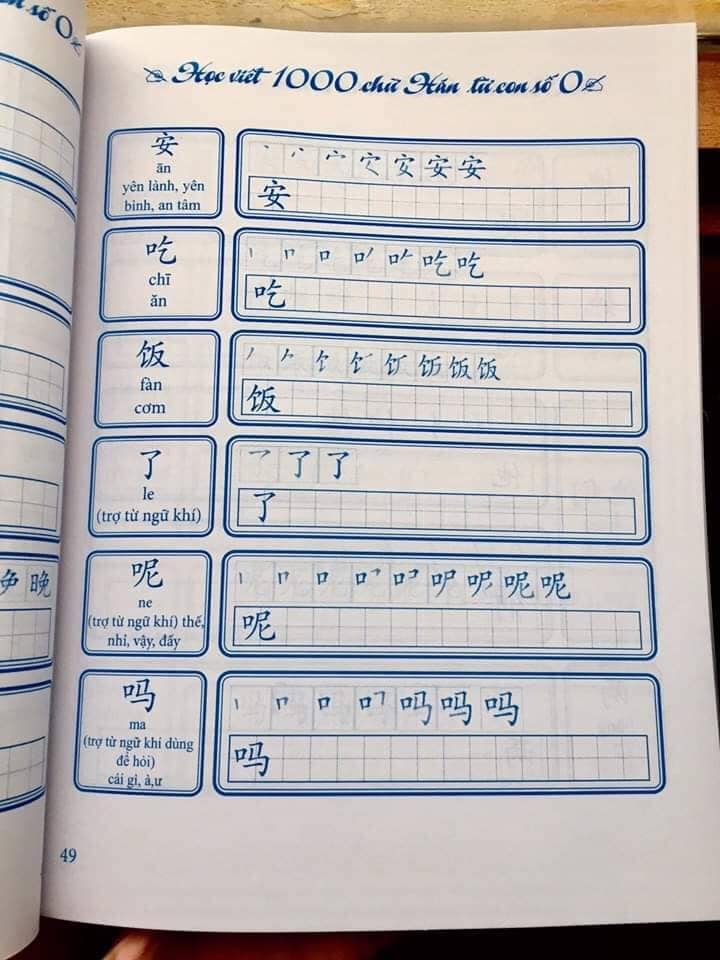 con số 0
Học viết 1000 chữ Hán từ con số 0
安
ān
yên lành, yên
bình, an tâm
安 安 安
安
吃
chī
ăn
吃 吃
吃
饭
fàn
cơm
饭 饭
饭
了
le
(trợ từ ngữ khí)
了 了
了
呢
ne
(trợ từ ngữ khí) thế,
nhỉ, vậy, đấy
呢 呢
呢
晚
吗
ma
(trợ từ ngữ khí dùng
để hỏi)
cái gì, à,ư
吗 吗 吗
吗
49